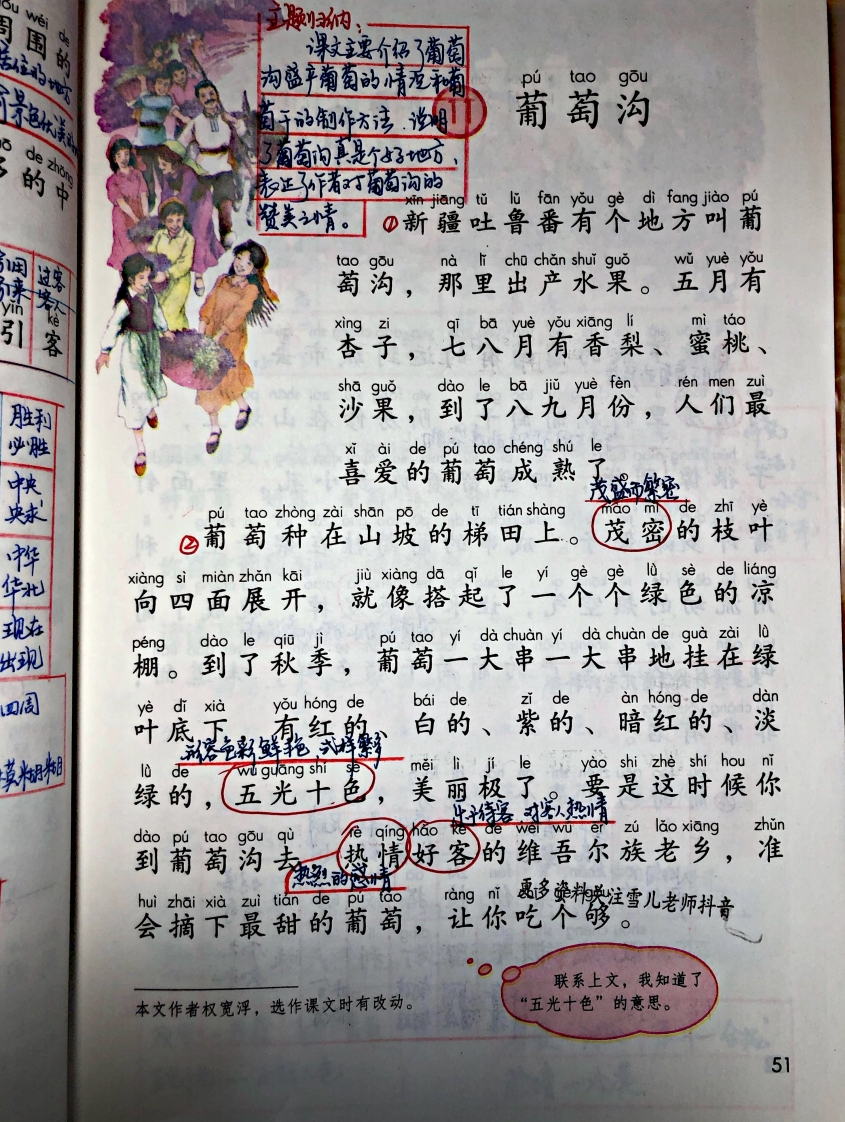 周围的
居住的地方
景色优美的
的中
客
引
胜利
必胜
中央
央求
中华
华北
现在
出现
四周
模糊
主题归纳:
课文主要介绍了葡萄
沟盛产葡萄的情况和葡
萄干的制作方法,说明
了葡萄沟真是个好地方,
表达了作者对葡萄沟的
赞美之情。
11
pú tao gōu
葡萄沟
xīn jiāng tǔ lǔ fān yǒu gè dì fang jiào pú
①新疆吐鲁番有个地方叫葡
tao gōu nà lǐ chū chǎn shuǐ guǒ wǔ yuè yǒu
萄沟,那里出产水果。五月有
xìng zi qī bā yuè yǒu xiāng lí mì táo
杏子,七八月有香梨、蜜桃、
shā guǒ dào le bā jiǔ yuè fèn rén men zuì
沙果,到了八九月份,人们最
xǐ ài de pú tao chéng shú le
喜爱的葡萄成熟了。
茂盛而繁密
pú tao zhòng zài shān pō de tī tián shàng mào mì de zhī yè
②葡萄种在山坡的梯田上。茂密的枝叶
xiàng sì miàn zhǎn kāi jiù xiàng dā qǐ le yí gè gè lǜ sè de liáng
向四面展开,就像搭起了一个个绿色的凉
péng dào le qiū jì pú tao yí dà chuàn yí dà chuàn de guà zài lǜ
棚。到了秋季,葡萄一大串一大串地挂在绿
yè dǐ xià yǒu hóng de bái de zǐ de àn hóng de dàn
叶底下,有红的、白的、紫的、暗红的、淡
形容色彩鲜艳,式样繁多
lǜ de wǔ guāng shí sè měi lì jí le yào shi zhè shí hou nǐ
绿的,五光十色,美丽极了。要是这时候你
乐于待客,对客人热情
dào pú tao gōu qù rè qíng hào kè de wéi wú ěr zú lǎo xiāng zhǔn
到葡萄沟去,热情好客的维吾尔族老乡,准
热烈的感情
huì zhāi xià zuì tián de pú tao ràng nǐ
会摘下最甜的葡萄,让你吃个够。
更多资料关注雪儿老师抖音
联系上文,我知道了
“五光十色”的意思。
本文作者权宽浮,选作课文时有改动。
51